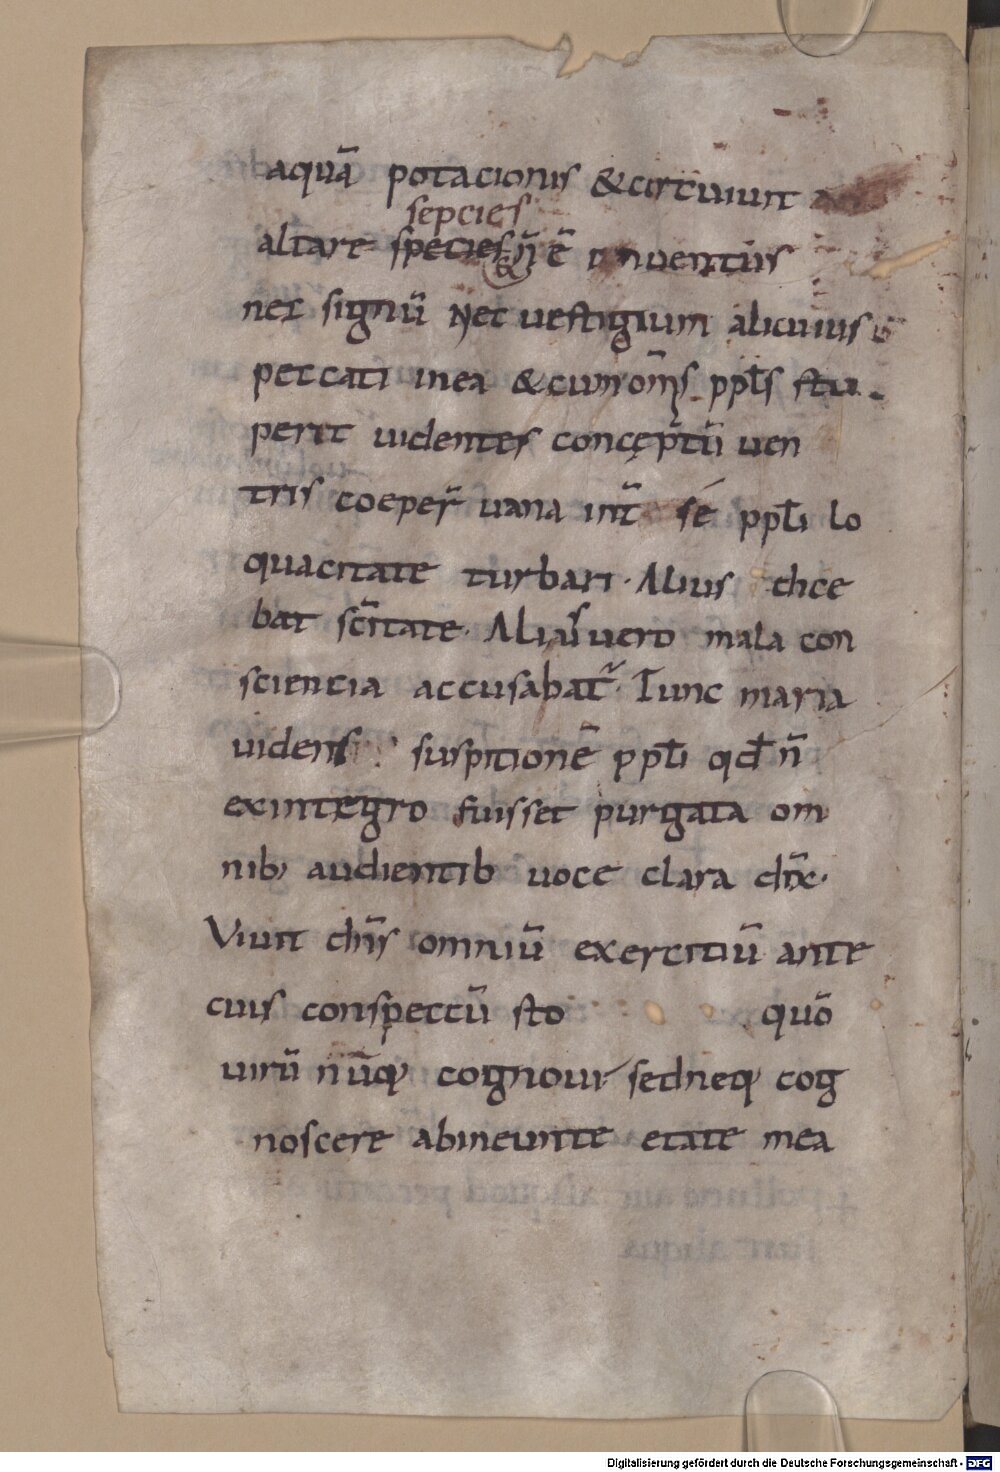 aquā potacionis & circuiuit
sepcies
altare species & n̄ ē inuentus
nec signū Nec uestigium alicuius
peccati inea & cum om̄s ppl̄s stu
perit uidentes concęptū uen
tris coeper̄ uana int̄ sé ppl̄i lo
quacitate turbari · Alius dice
bat sc̄itate · Alius uero mala con
sciencia accusabat᷑ · Tunc maria
uidens suspitionē ppl̄i qđ n̄
exintegro fuisset purgata om
nib; audientib uoce clara dix̄ ·
Viuit dn̄s omniū exercitiū ante
cuius conspectū sto quō
uirū nūq; cognoui sedneq; cog
noscere abineunte etate mea
Digitalisierung gefördert durch die Deutsche Forschungsgemeinschaft - DFG